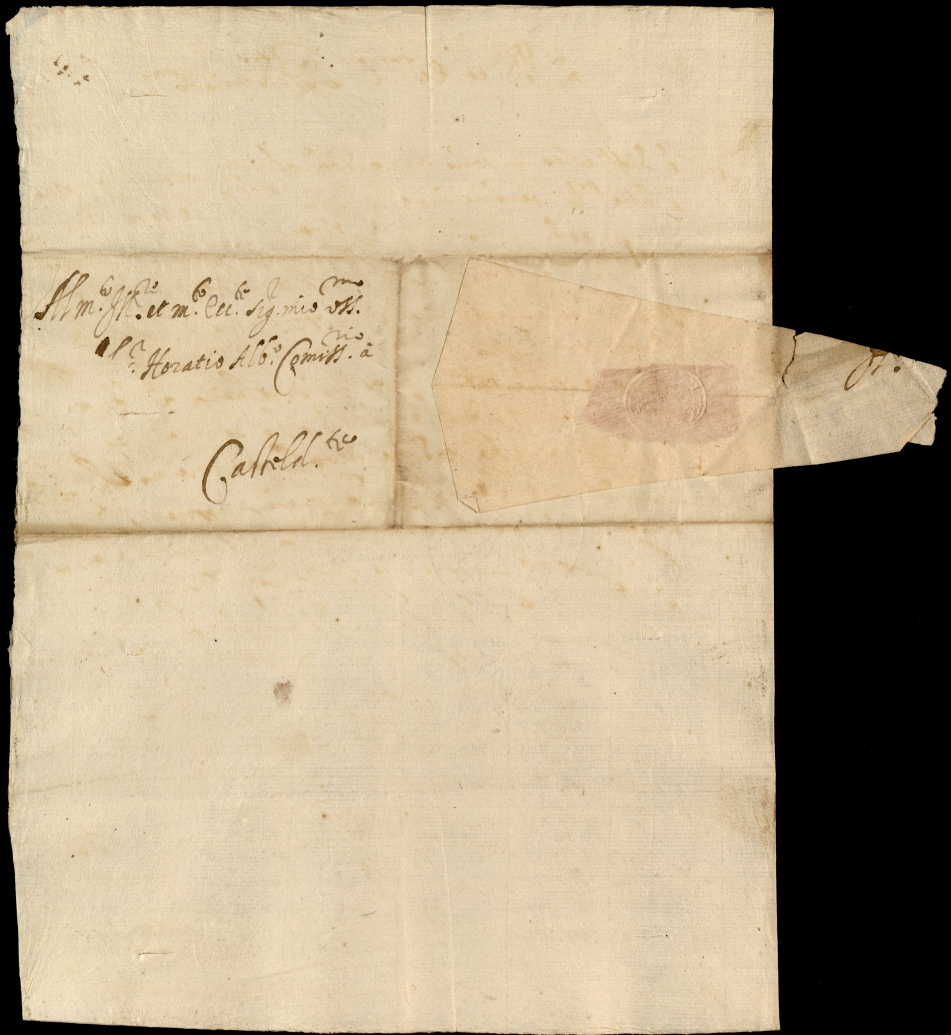 Al m.to Ill.re et m.to Ecc.te sig.r mio oss.mo
il s.r Horatio Alb.o Comiss.rio à
Casteld.te